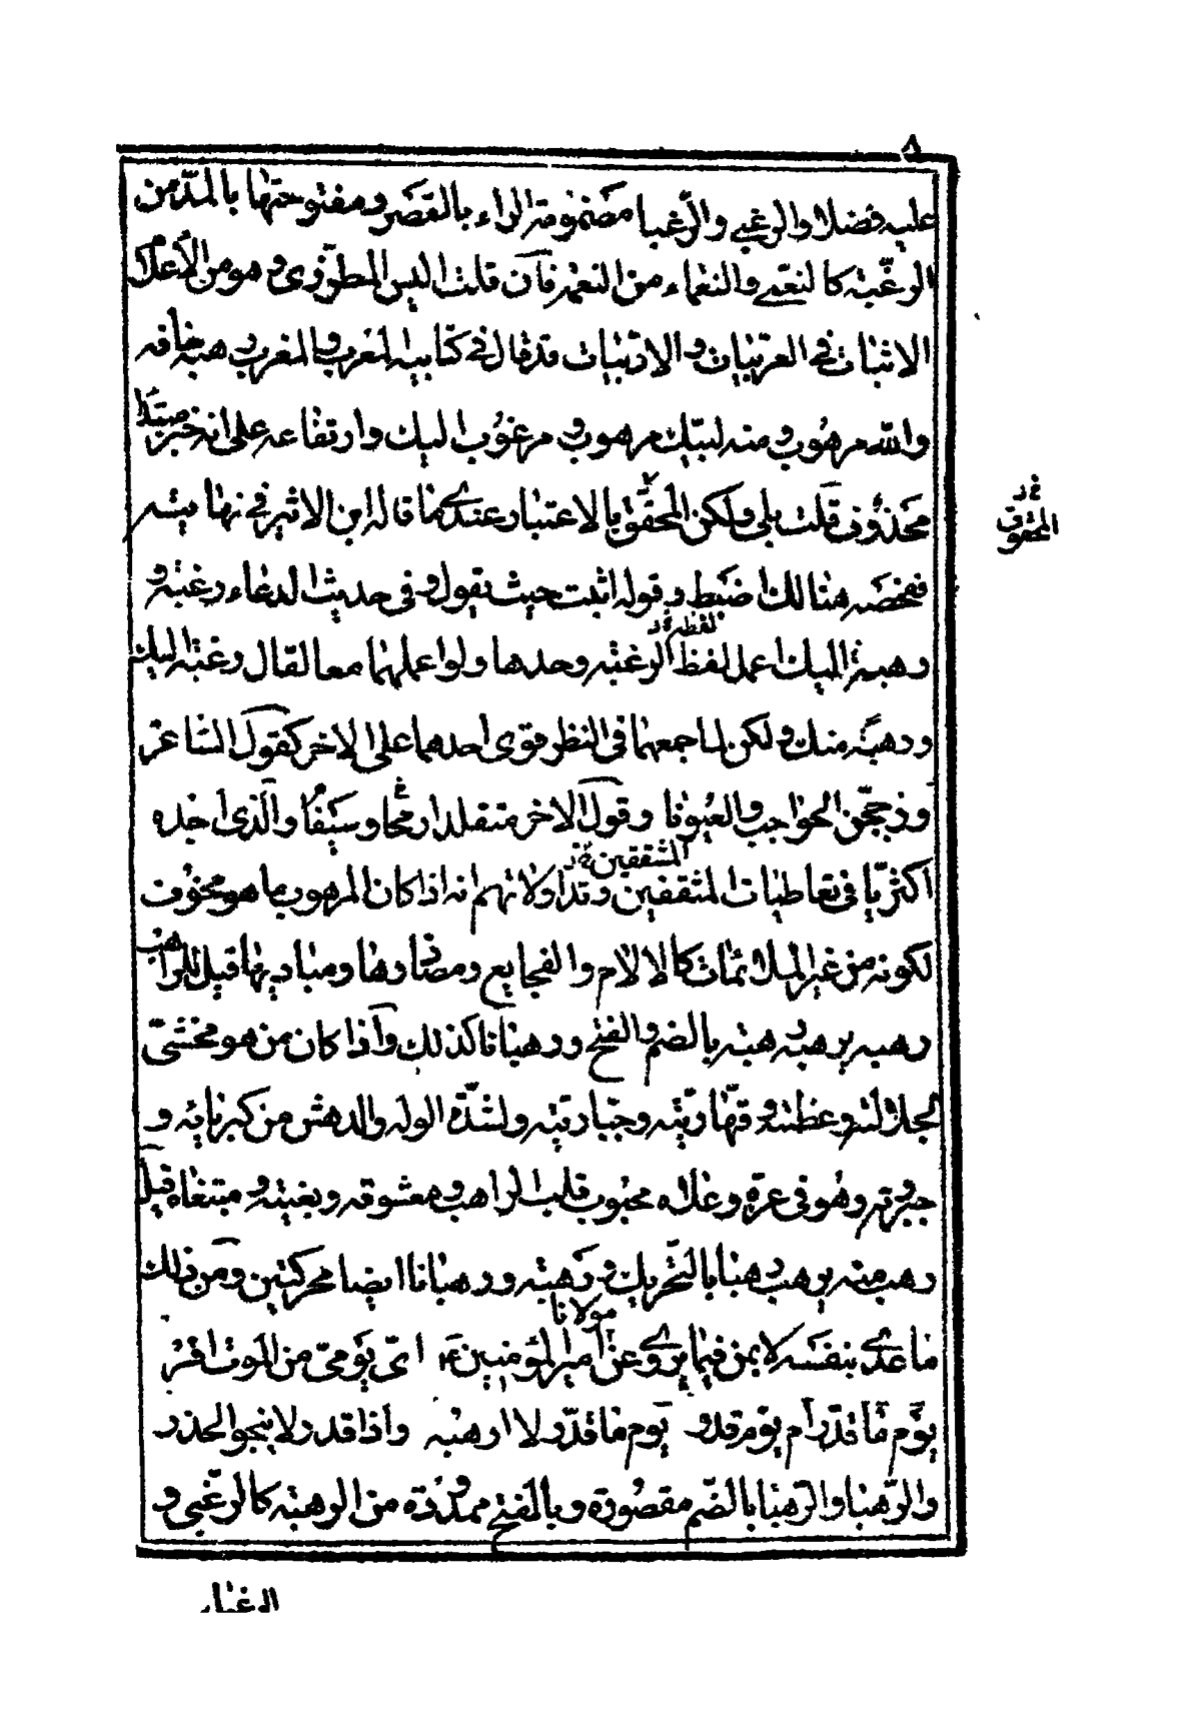 ٨
عليه فضلا والرغبى والرّغبا مضمومة الراء بالقصر ومفتوحتها بالمدّ من
الرغبة كالنعمى والنعماء من النعمة فآن قلت اليس المطرّزى وهو من الأعلام
الاثبات فى العربيات والادبيات قد قال فى كتابيه المعرب والمغرب رهبه خافه
والله مرهوب ومنه لبيك مرهوب ومرغوب اليك وارتفاعه على انه خبر مبتدا
محذوف قلت بلى ولكن المحقوق بالاعتبار عندى ما قاله ابن الاثير فى نهايته
فمخصه هنالك اضبط وقوله اثبت حيث يقول وفى حديث الدعاء رغبة و
لفظة خ د
رهبة اليك اعمل لفظ الرغبة وحدها ولو اعملهما معا لقال رغبة اليك
ورهبة منك ولكن لما جمعهما فى النظم قوى احدهما على الاخر كقول الشاعر
وزججن الحواجب والعيونا وقول الاخر متقلدا رمحا وسيفا والّذى اخذه
المشققين خ د
اكثريّا فى تعاطيات المثقفين وتداولاتهم انه اذا كان المرهوب ما هو مخوف
لكونه من غير الملائمات كالالام والفجايع ومصادرها ومباديها قيل للراهب
رهبه يرهبه رهبة بالضم والفتح ورهبانا كذلك وآذا كان من هو مخشىّ
لجلالته وعظمته وقهّاريّته وجبّاريّته ولشدّة الوله والدهش من كبريائه و
جبروته وهو فى عزّه وعلاه محبوب قلب الراهب ومعشوقه وبغيته ومبتغاه قيل
رهب منه يرهب رهبا بالتحريك ورهبة ورهبانا ايضا محركتين ومن ذلك
مولانا
ما عدى بنفسه لا بمن فيما يروى عن امير المؤمنين ع اىّ يومىّ من الموت افرّ
يوم ما قدّر ام يوم قدر يوم ما قدّر لا ارهبه واذا قدر لا ينجو الحذر
والرّهبا والرّهبا بالضّم مقصورة وبالفتح ممدودة من الرهبة كالرّغبى و
الرغباء
خ د
المحقوق